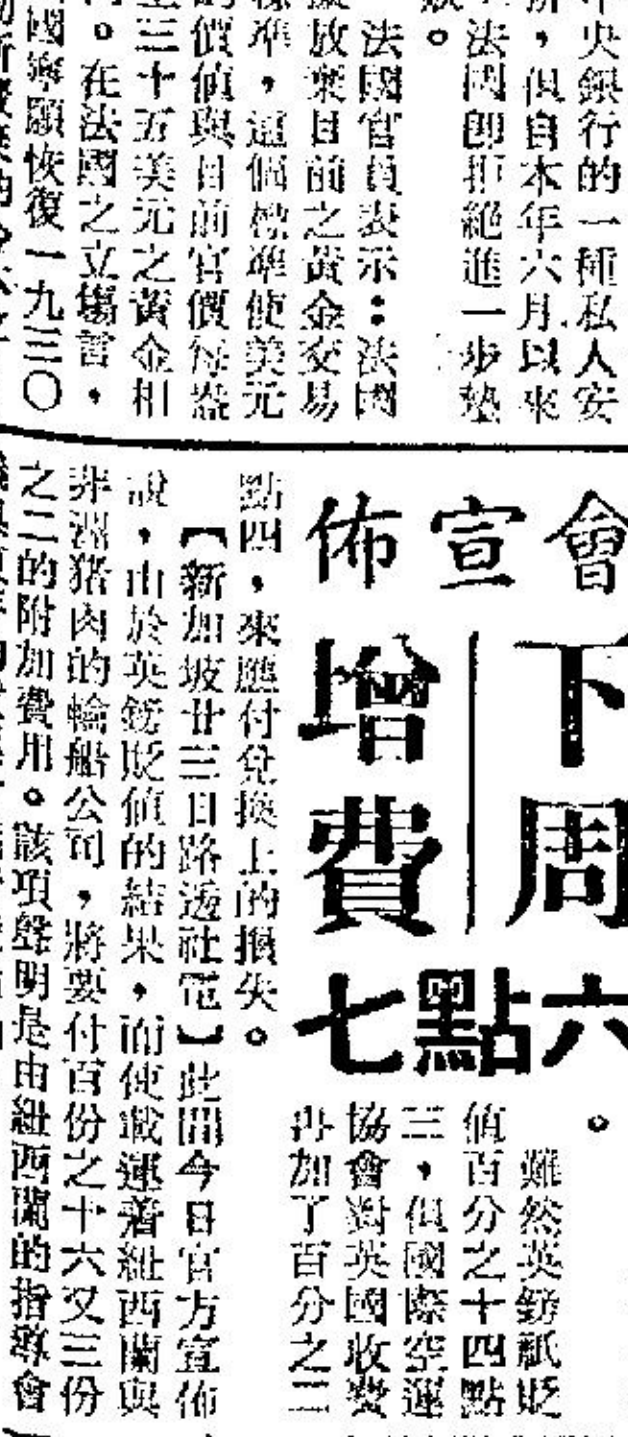 中央銀行的一種私人安
,但自本年六月以來
法國即拒絕進一步墊
。
法國官員表示:法國
放棄目前之黃金交易
標準,這個標準使美元
的價值與目前官價每盎
三十五美元之黃金相
。在法國之立場言,
國寧願恢復一九三〇
會宣佈
下周
增費
六點七
。
雖然英鎊祇貶
值百分之十四點
三,但國際空運
協會對英國收費
再加了百分之二
點四,來應付兌換上的損失。
【新加坡廿三日路透社電】此間今日官方宣佈
說,由於英鎊貶值的結果,而使載運着紐西蘭與
非洲猪肉的輪船公司,將要付百份之十六又三份
之二的附加費用。該項聲明是由紐西蘭的指導會